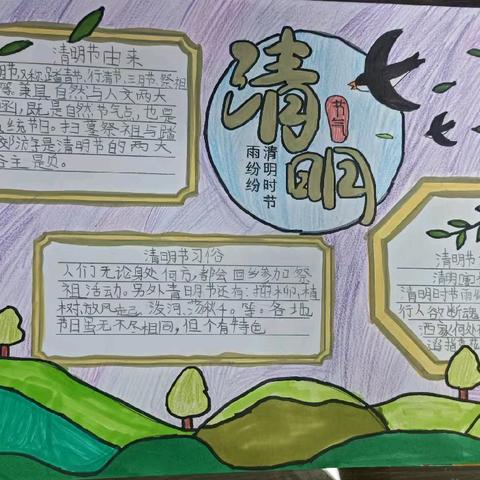 清明节由来
明节,又称踏青节,行清节、三月节、祭祖
兼具自然与人文两大
涵,既是自然节气点,也是
统节日。扫墓祭祖与踏
清明节的两大
主题。
清明
节气
清明时节
雨纷纷
清明节习俗
人们无论身处何方,都会回乡参加祭
祖活动。另外清明节还有:插柳,植
树,放风 拔河、荡秋千。等。各地
节日虽无不尽相同,但个有特色
清明节
清明
清明时节雨
行人欲断魂
酒家何处